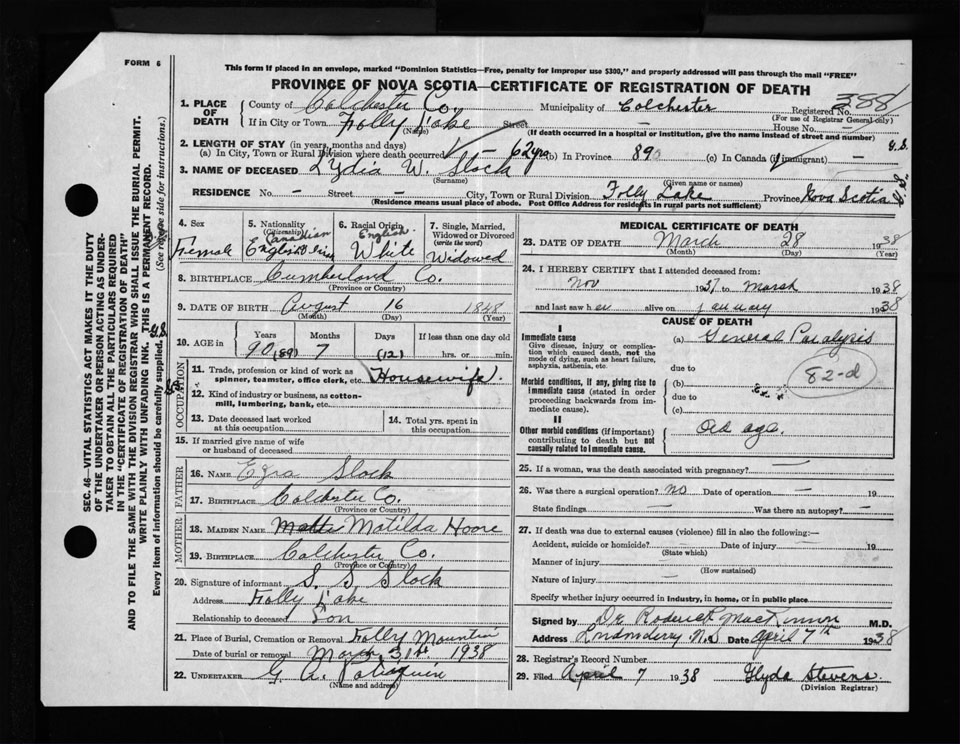 FORM 6
This form if placed in an envelope, marked "Dominion Statistics—Free, penalty for improper use $300," and properly addressed will pass through the mail "FREE"
PROVINCE OF NOVA SCOTIA—CERTIFICATE OF REGISTRATION OF DEATH
1. PLACE OF DEATH
County of Colchester Co. Municipality of Colchester Registered No. 388
(For use of Registrar General only)
If in City or Town Folly Lake Street — House No. —
(Name) (If death occurred in a hospital or institution, give the name instead of street and number)
2. LENGTH OF STAY (in years, months and days)
(a) In City, Town or Rural Division where death occurred 62 yrs (b) In Province 89 (c) In Canada (if immigrant) —
3. NAME OF DECEASED Lydia W. Slock
(Surname) (Given name or names)
RESIDENCE No. — Street — City, Town or Rural Division Folly Lake Province Nova Scotia
(Residence means usual place of abode. Post Office Address for residents in rural parts not sufficient)
4. Sex Female
5. Nationality (Citizenship) Canadian English
6. Racial Origin English White
7. Single, Married, Widowed or Divorced (write the word) Widowed
8. BIRTHPLACE Cumberland Co.
(Province or Country)
9. DATE OF BIRTH August 16 1848
(Month) (Day) (Year)
10. AGE in Years Months Days If less than one day old
90 (89) 7 (12) hrs. or min.
OCCUPATION
11. Trade, profession or kind of work as spinner, teamster, office clerk, etc. Housewife
12. Kind of industry or business, as cotton-mill, lumbering, bank, etc.
13. Date deceased last worked at this occupation
14. Total yrs. spent in this occupation
15. If married give name of wife or husband of deceased
FATHER
16. NAME Ezra Slock
17. BIRTHPLACE Colchester Co.
(Province or Country)
MOTHER
18. MAIDEN NAME Matilda Hoore
19. BIRTHPLACE Colchester Co.
(Province or Country)
20. Signature of informant S. S. Slock
Address Folly Lake
Relationship to deceased Son
21. Place of Burial, Cremation or Removal Folly Mountain
Date of burial or removal March 31st 1938
22. UNDERTAKER G. A.
(Name and address)
MEDICAL CERTIFICATE OF DEATH
23. DATE OF DEATH March 28 1938
(Month) (Day) (Year)
24. I HEREBY CERTIFY that I attended deceased from:
Nov 1937 to Marsh 1938
and last saw her alive on January 1938
CAUSE OF DEATH
I
Immediate cause
Give disease, injury or complication which caused death, not the mode of dying, such as heart failure, asphyxia, asthenia, etc.
(a) General Paralysis
due to
82-d
Morbid conditions, if any, giving rise to immediate cause (stated in order proceeding backwards from immediate cause).
(b)
due to
(c)
II
Other morbid conditions (if important) contributing to death but not causally related to immediate cause.
Old age.
25. If a woman, was the death associated with pregnancy? —
26. Was there a surgical operation? No Date of operation — 19
State findings — Was there an autopsy? —
27. If death was due to external causes (violence) fill in also the following:—
Accident, suicide or homicide? — Date of injury 19
(State which)
Manner of injury —
(How sustained)
Nature of injury —
Specify whether injury occurred in industry, in home, or in public place
Signed by Dr Roderick MacKinnon M.D.
Address Londonderry N.S Date April 7th 1938
28. Registrar's Record Number
29. Filed April 7 1938 Glyda Stevens
(Division Registrar)
SEC. 46—VITAL STATISTICS ACT MAKES IT THE DUTY
OF THE UNDERTAKER OR PERSON ACTING AS UNDERTAKER
TO OBTAIN ALL THE PARTICULARS REQUIRED
IN THE "CERTIFICATE OF REGISTRATION OF DEATH"
AND TO FILE THE SAME WITH THE DIVISION REGISTRAR WHO SHALL ISSUE THE BURIAL PERMIT.
WRITE PLAINLY WITH UNFADING INK. THIS IS A PERMANENT RECORD.
Every item of information should be carefully supplied. (See reverse side for instructions.)